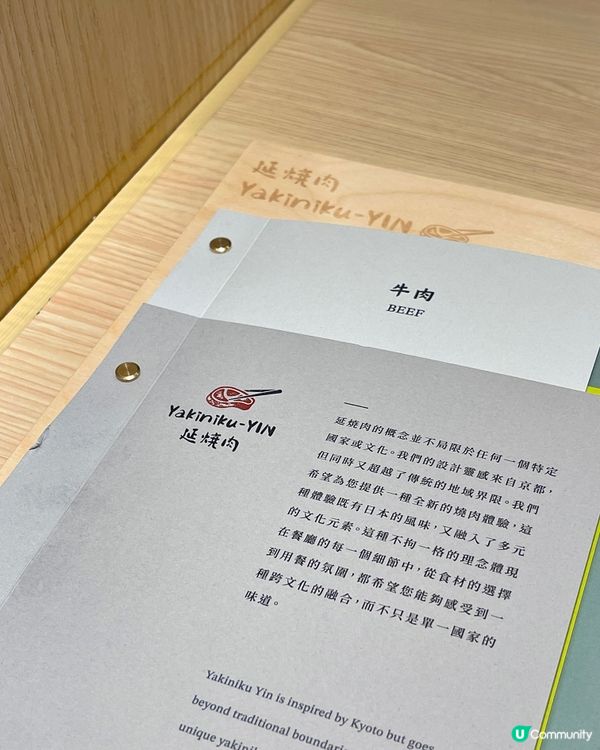 延燒肉
Yakiniku-YIN
牛肉
BEEF
Yakiniku-YIN
延燒肉
延燒肉的概念並不局限於任何一個特定
國家或文化。我們的設計靈感來自京都，
但同時又超越了傳統的地域界限。我們
希望為您提供一種全新的燒肉體驗，這
種體驗既有日本的風味，又融入了多元
的文化元素。這種不拘一格的理念體現
在餐廳的每一個細節中，從食材的選擇
到用餐的氛圍，都希望您能夠感受到一
種跨文化的融合，而不只是單一國家的
味道。
Yakiniku Yin is inspired by Kyoto but goes
beyond traditional boundari
unique yakini
U Community